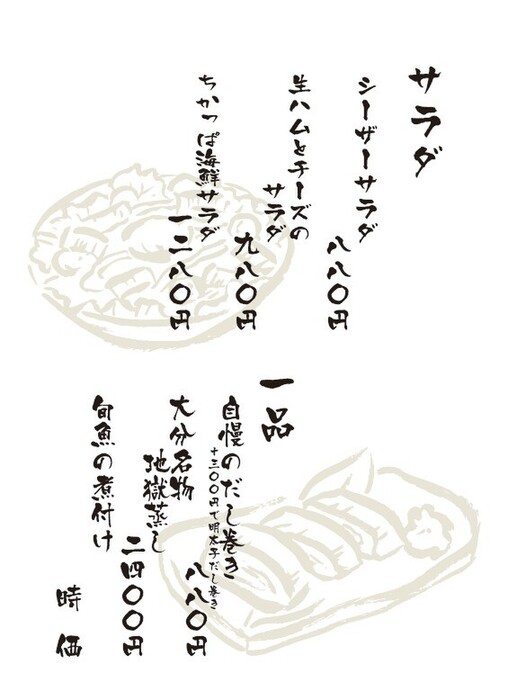 サラダ
シーザーサラダ
八八〇円
生ハムとチーズの
サラダ
九八〇円
ちかっぱ海鮮サラダ
一二八〇円
一品
自慢のだし巻き
八八〇円
+三〇〇円で明太子だし巻き
大分名物
地獄蒸し
二四〇〇円
旬魚の煮付け
時価